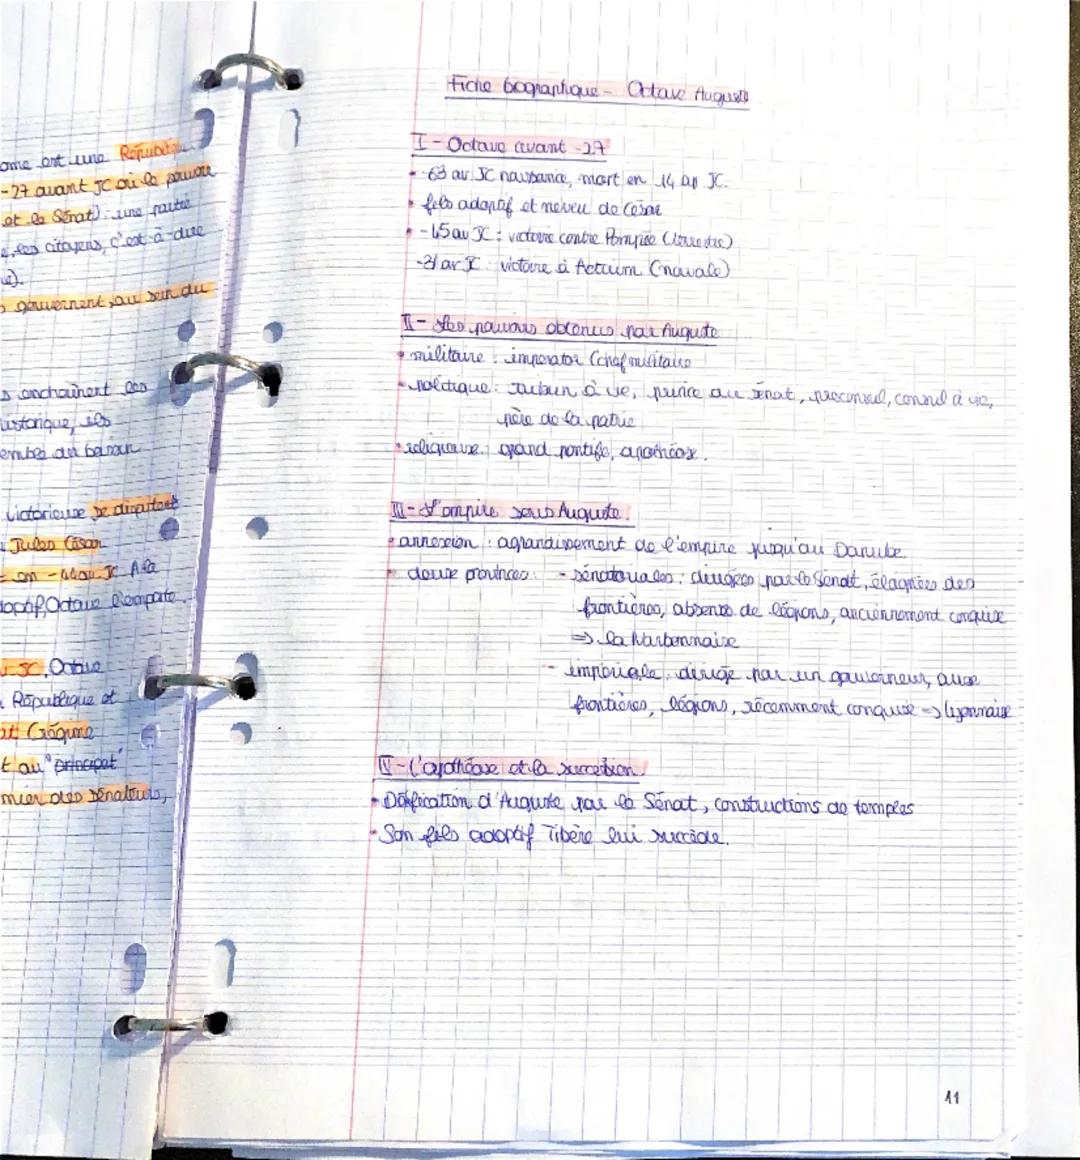 ome est une République
-27 avant JC où le pouvoir
et le Sénat) : une partie
e, les citoyens, c'est-à-dire
ue).
s gouvernent, au sein du
s enchaînent les
historique, ils
victorieuse se disputent
Jules César
en -44 av JC A la
doptif, Octave l'emporte.
JC, Octave
République et
et (régime
t au "principat"
mier des sénateurs,
Fiche biographique - Octave Auguste
I - Octave avant -27
• -63 av JC naissance, mort en 14 ap JC.
• fils adoptif et neveu de César
• -45 av JC : victoire contre Pompée (terrestre)
-31 av JC : victoire à Actium (navale)
II - Les pouvoirs obtenus par Auguste
• militaire : imperator (chef militaire
• politique : tribun à vie, prince au sénat, proconsul, consul à vie,
père de la patrie
• religieux : grand pontife, apothéose.
III - L'empire sous Auguste.
• annexion : agrandissement de l'empire jusqu'au Danube
• deux provinces : - sénatoriales : dirigées par le Sénat, élagnées des
frontières, absence de légions, anciennement conquise
=> la Narbonnaise
- impériale, dirigé par un gouverneur, avec
frontières, légions, récemment conquise => lyonnaise
IV - L'apothéose et la succession.
• Déification d'Auguste par le Sénat, constructions de temples
• Son fils adoptif Tibère lui succède.
11